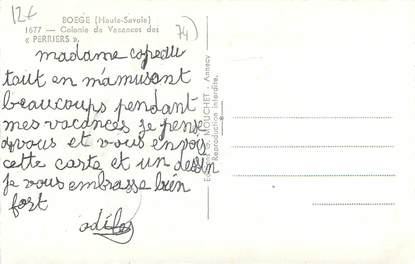 12€
74)
BOEGE (Haute-Savoie)
1677 — Colonie de Vacances des
« PERRIERS ».
madame
tout en m'amusant
beaucoups pendant
mes vacances je pense
a vous et vous envois
cette carte et un dessin
je vous embrasse bien
fort
odile
MOUCHET - Annecy
Reproduction interdite.